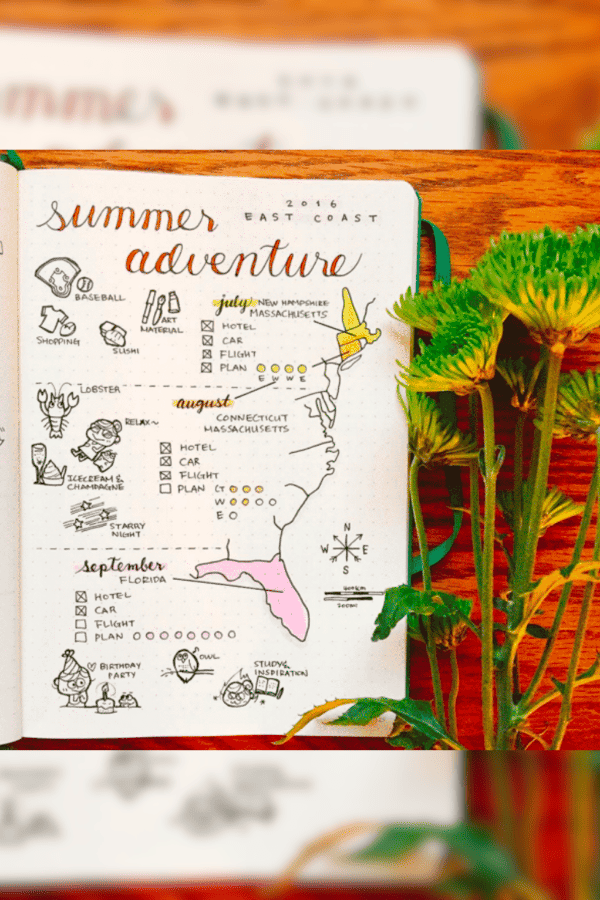 summer
2016
EAST COAST
adventure
BASEBALL
ART
MATERIAL
SHOPPING
SUSHI
july NEW HAMPSHIRE
MASSACHUSETTS
HOTEL
CAR
FLIGHT
PLAN
E W W E
LOBSTER
RELAX~
ICECREAM &
CHAMPAGNE
STARRY
NIGHT
august
CONNECTICUT
MASSACHUSETTS
HOTEL
CAR
FLIGHT
PLAN CT
W
E
N
W E
S
september
FLORIDA
HOTEL
CAR
FLIGHT
PLAN
BIRTHDAY
PARTY
OWL
STUDY &
INSPIRATION